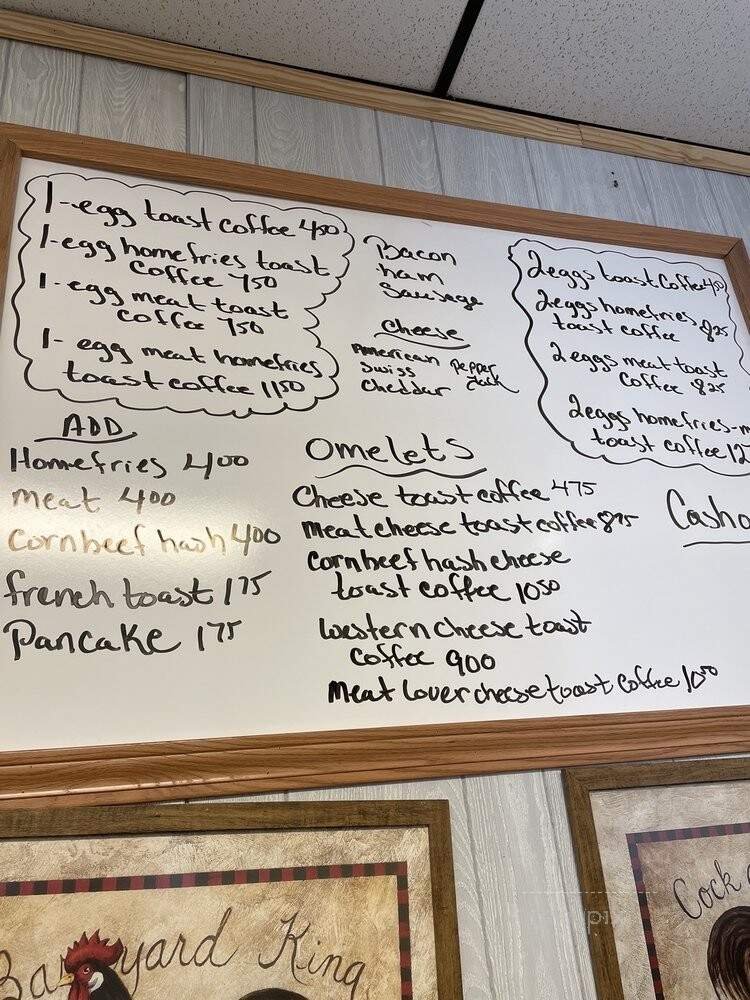 1-egg toast coffee 400
1-egg homefries toast
coffee 750
1-egg meat toast
coffee 750
1-egg meat homefries
toast coffee 1150
Bacon
ham
Sausage
cheese
American Pepper
Swiss Jack
Cheddar
2eggs toast coffee
2eggs homefries
toast coffee 825
2eggs meat toast
coffee 825
2eggs homefries-m
toast coffee 12
ADD
Homefries 400
meat 400
cornbeef hash 400
french toast 175
Pancake 175
Omelets
Cheese toast coffee 475
Meat cheese toast coffee 875
Cornbeef hash cheese
toast coffee 1050
Western cheese toast
coffee 900
Meat Lover cheese toast coffee 1050
Casho
Barnyard King
Cock